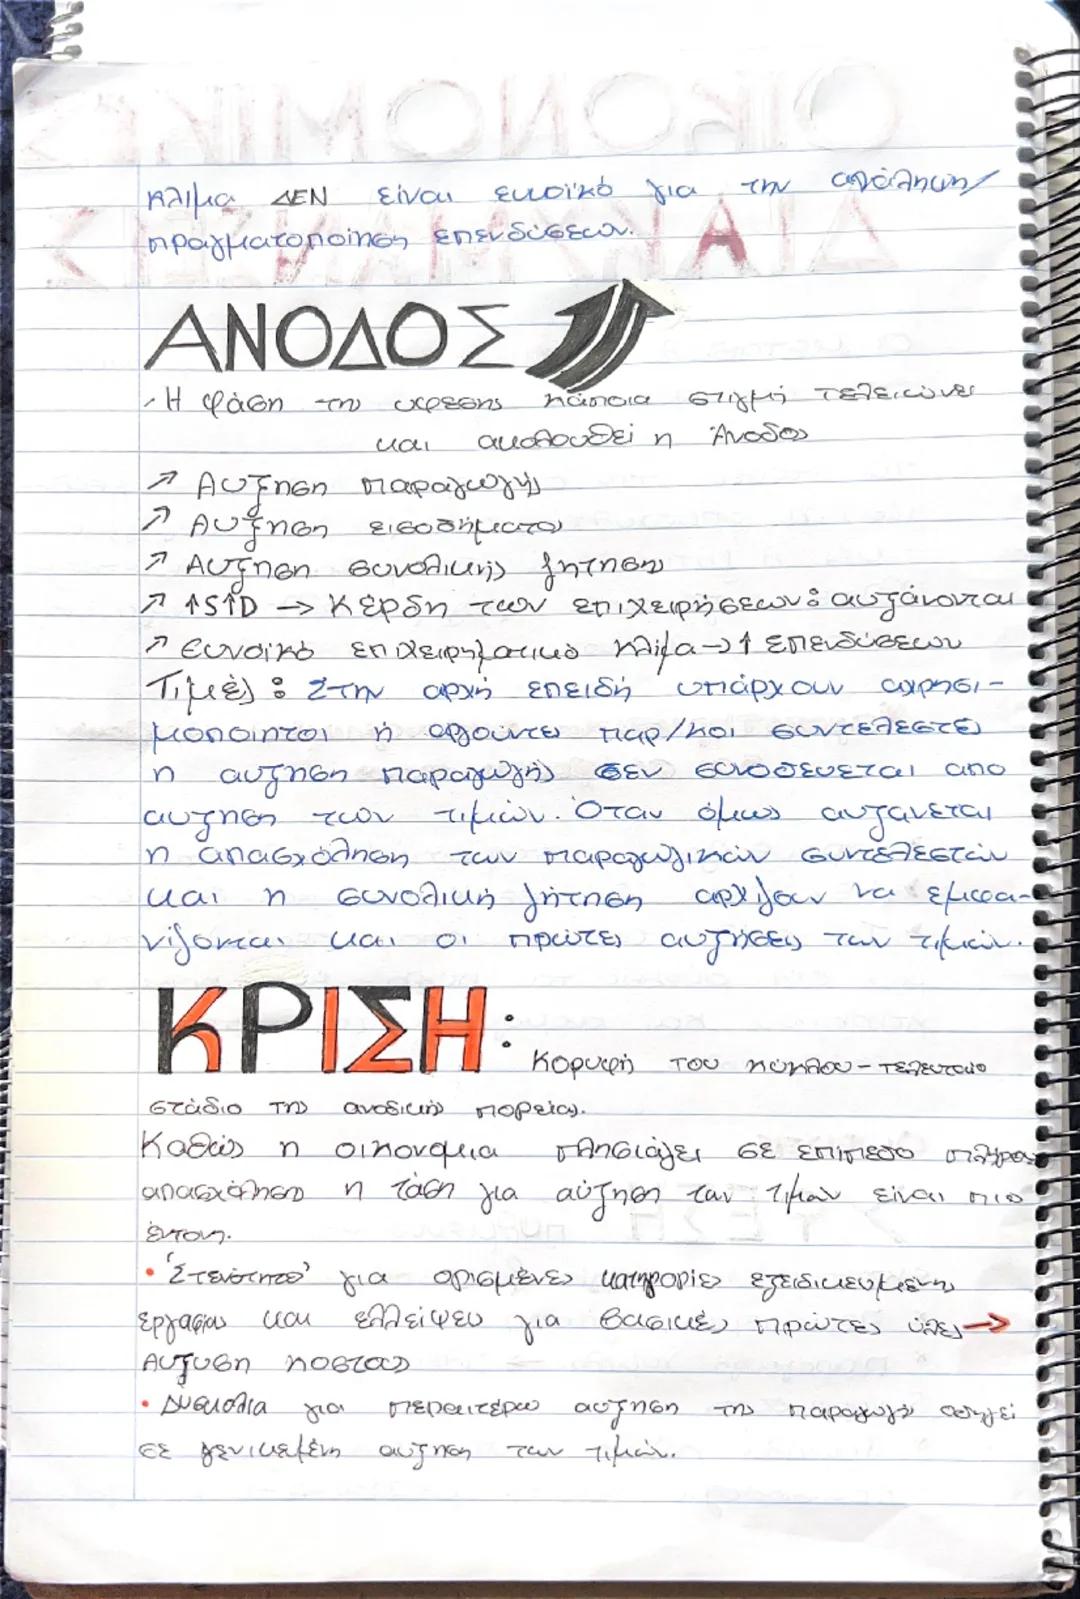 κλίμα ΔΕΝ είναι ευνοϊκό για την ανάληψη/
πραγματοποίηση επενδύσεων.
ΑΝΟΔΟΣ
Η φάση της υφεσης κάποια στιγμή τελειώνει
και ακολουθεί η Άνοδος
↗ Αυξηση παραγωγής
↗ Αυξηση εισοδήματος
↗ Αυξηση συνολικής ζητησης
↗ ↑S↑D → Κέρδη των επιχειρήσεων: αυξάνονται
↗ Ευνοϊκό επιχειρηματικό κλίμα → ↑ επενδύσεων
Τιμές: Στην αρχή επειδή υπάρχουν αχρησι-
μοποιητοι ή αργούντες παρ/κοι συντελεστές
η αυξηση παραγωγής δεν συνοδευεται απο
αυξηση των τιμών. Όταν όμως αυξανεται
η απασχόληση των παραγωγικών συντελεστών
και η συνολική ζήτηση αρχιζουν να εμφα-
νίζονται και οι πρώτες αυξήσεις των τιμών.
ΚΡΙΣΗ:
Κορυφή του κύκλου - τελευταιο
στάδιο της ανοδικής πορείας.
Καθώς η οικονομια πλησιάζει σε επιπεδο πλήρους
απασχόλησης η τάση για αύξηση των τιμών είναι πιο
έντονη.
• 'Στενότητες' για ορισμένες κατηγορίες εξειδικευμένης
εργασίας και ελλείψεις για βασικές πρώτες ύλες →
Αυξυση κοστους
• Δυσκολια για περαιτέρω αυξηση της παραγωγής οδηγεί
σε γενικευμένη αυξηση των τιμών.